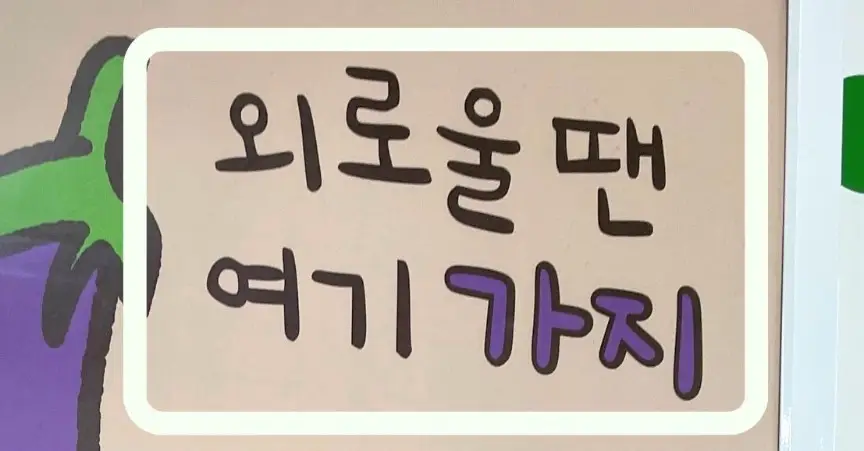 외로울 땐
여기 가지